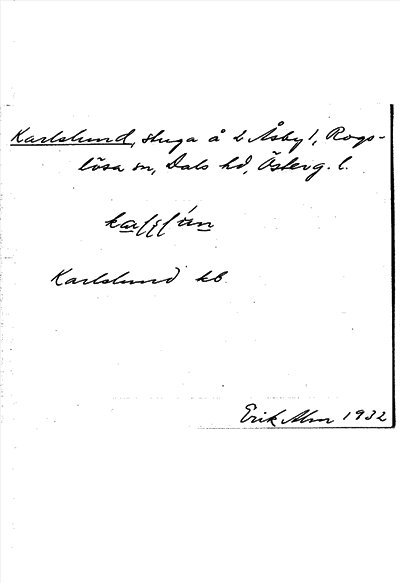 Karlslund, stuga å L Åsby 1, Rogs-
lösa sn, Dals hd, Österg. l.
Karlslund kb.
Erik Alm 1932